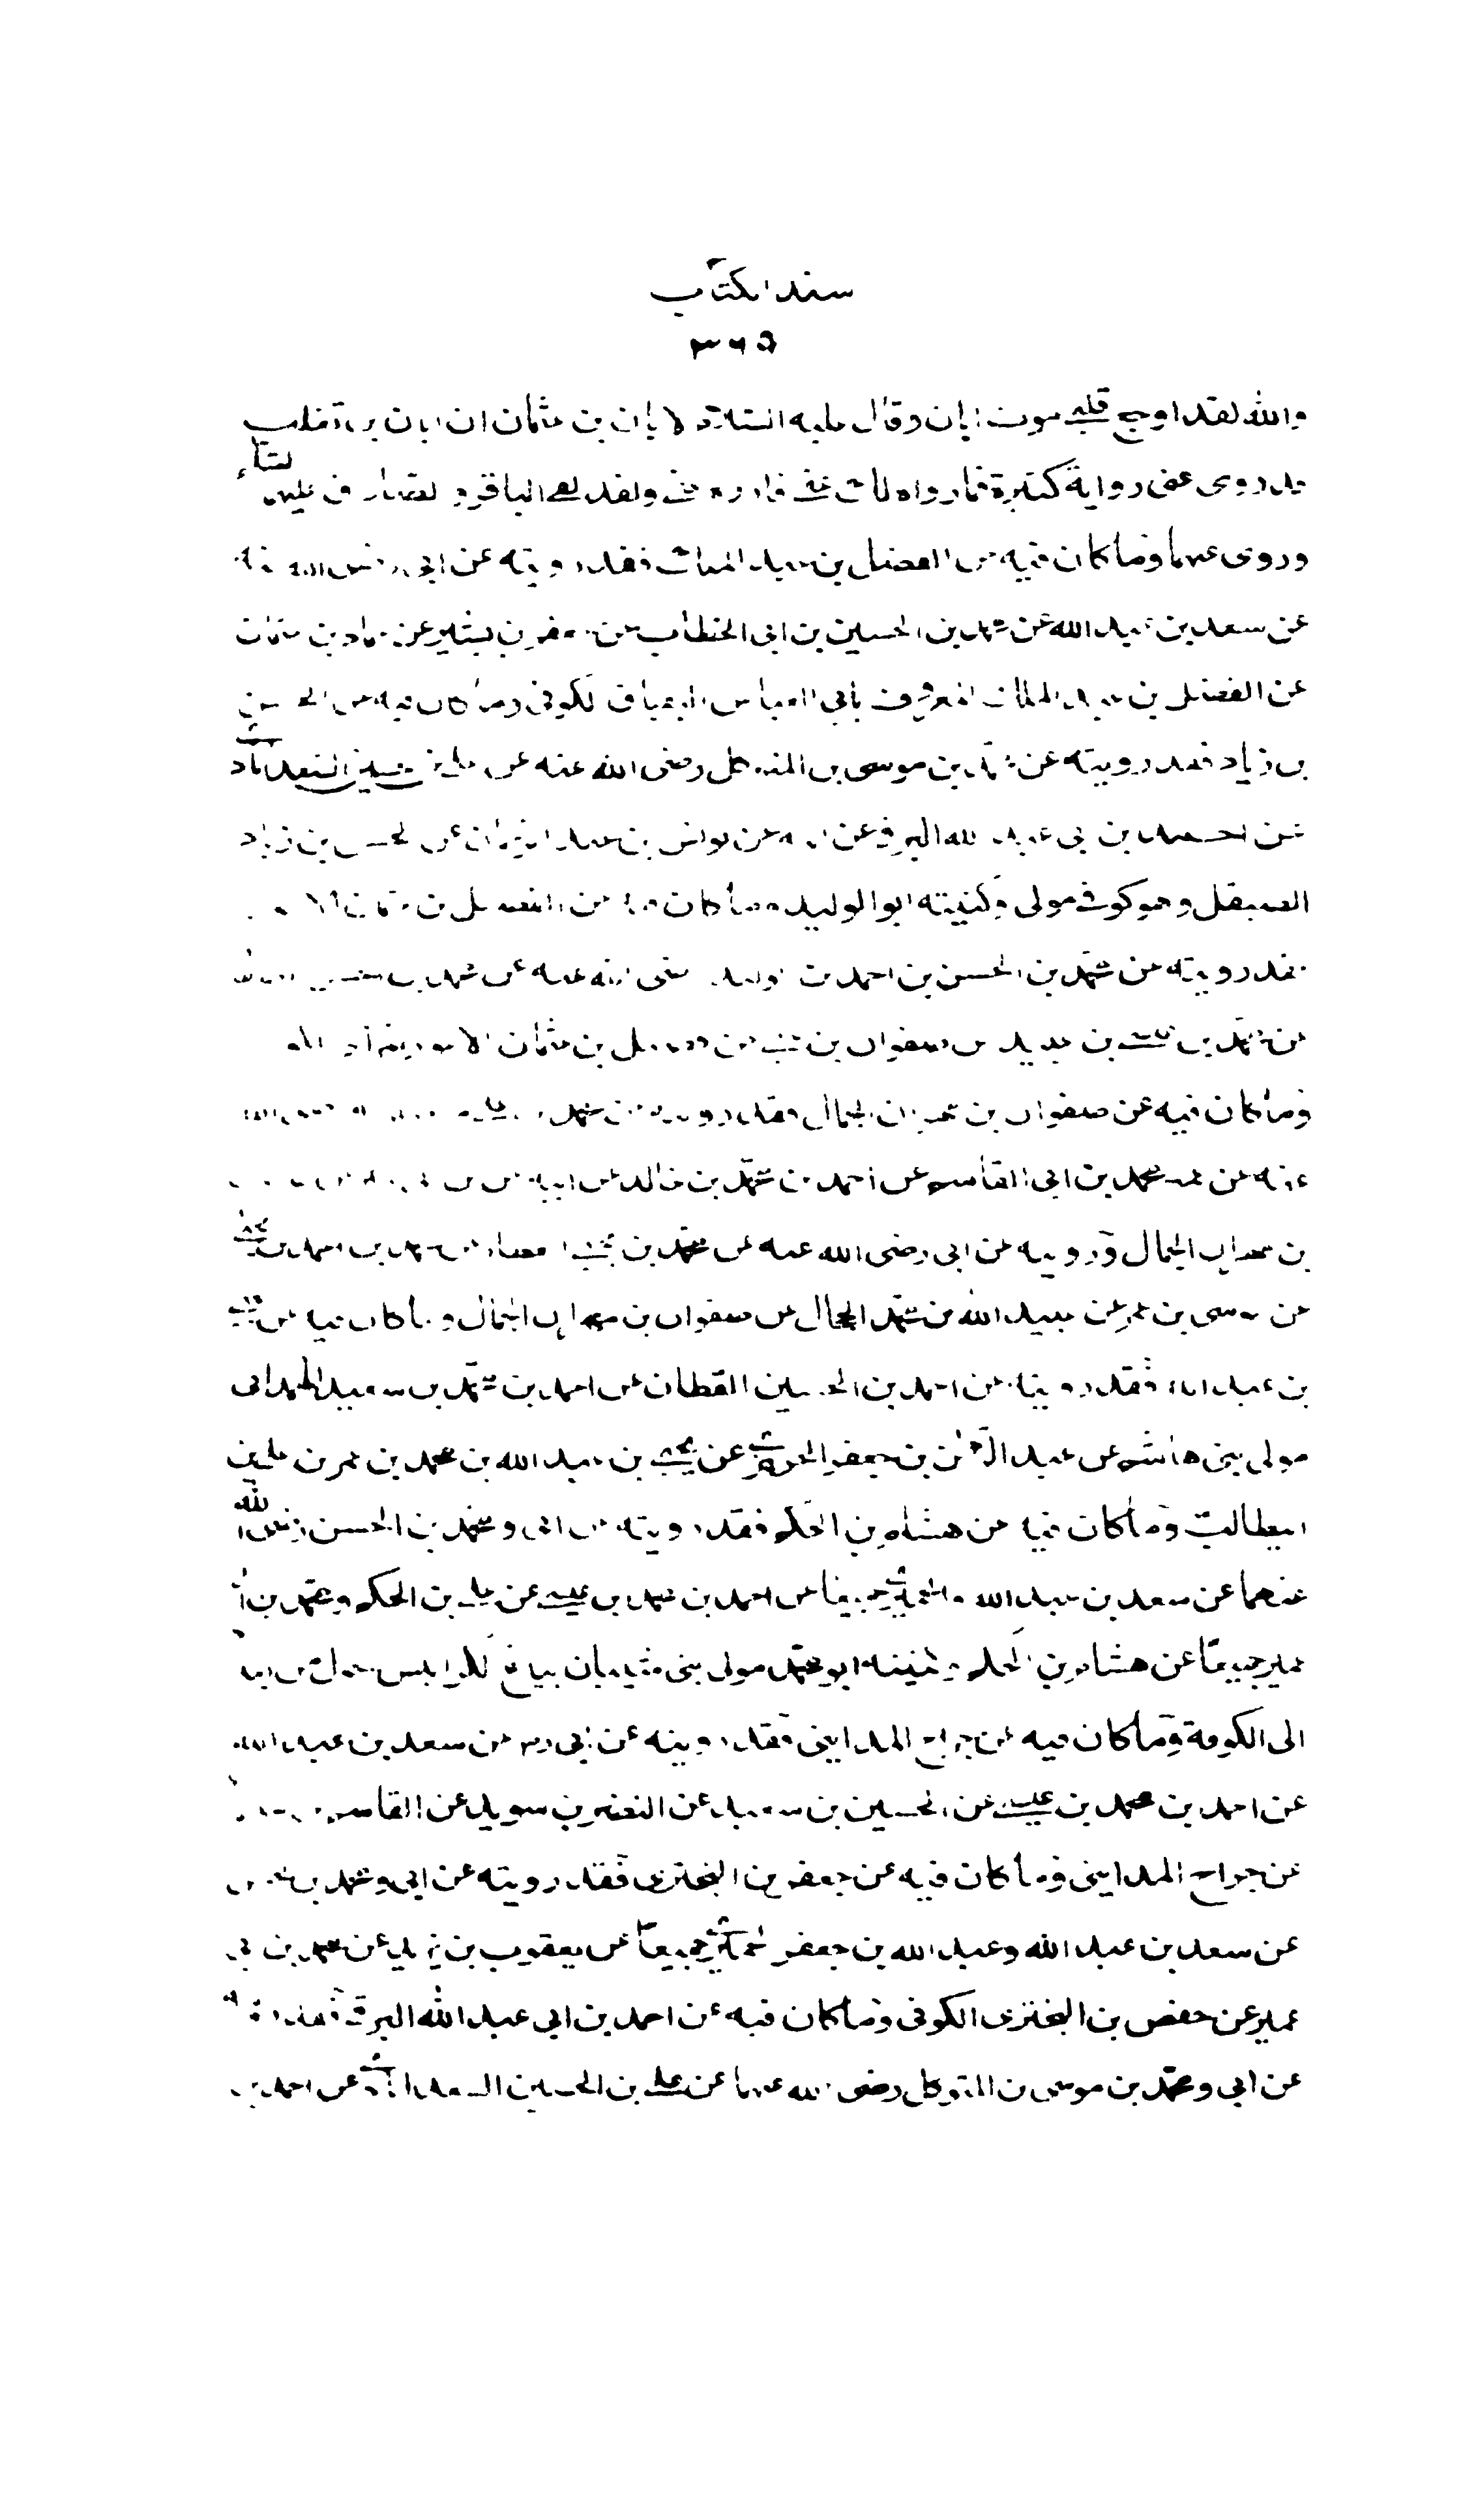 سند الكتاب
٣٦٥
والله لقد اوجع قلبي موت ابان وقال عليه السلام لابان بن عثمان ان ابان بن تغلب
روى عنى رواية كثيرة فما رواه لك عنى فاروه عنى ولقد لقى الباقر والصادق عليهما السلام
وروى عنهما وما كان فيه عن الفضل بن عبد الملك فقد رويته عن ابى رضى الله عنه
عن سعد بن عبد الله عن محمد بن الحسين بن ابى الخطاب عن جعفر بن بشير عن حماد بن عثمان
عن الفضل بن عبد الملك المعروف بابى العباس البقباق الكوفى وما كان فيه عن الحسن
بن زياد فقد رويته عن محمد بن موسى بن المتوكل رضى الله عنه عن على بن الحسين السعد آبادى
عن احمد بن ابى عبد الله البرقى عن ابيه عن يونس بن عبد الرحمان عن الحسن بن زياد
الصيقل وهو كوفى مولى وكنيته ابو الوليد وما كان فيه عن الفضيل بن عثمان الا
فقد رويته عن محمد بن الحسن بن احمد بن الوليد رضى الله عنه عن محمد بن الحسن الصفار
عن محمد بن عيسى بن عبيد عن صفوان بن يحيى عن فضيل بن عثمان الاعور المرادى
وما كان فيه عن صفوان بن مهران الجمال فقد رويته عن محمد بن على
عنه عن عمه محمد بن ابى القاسم عن احمد بن محمد بن خالد عن ابيه عن
بن مهران الجمال ورويته عن ابى رضى الله عنه عن محمد بن يحيى العطار عن محمد بن احمد بن يحيى
عن موسى بن عمر عن عبيد الله بن محمد الجمال عن صفوان بن مهران الجمال وما كان فيه عن يحيى
بن عبد الله فقد رويته عن احمد بن الحسين القطان عن احمد بن محمد بن سعيد الهمدانى
مولى بنى هاشم عن عبد الرحمن بن جعفر الحريرى عن يحيى بن عبد الله بن محمد بن عمر بن على بن
ابيطالب وما كان فيه عن هشام بن الحكم فقد رويته عن ابى ومحمد بن الحسن رضى الله
عنهما عن سعد بن عبد الله والحميرى جميعا عن احمد بن محمد بن عيسى عن على بن الحكم ومحمد بن ابى
عمير جميعا عن هشام بن الحكم وكنيته ابو محمد مولى بنى شيبان بياع الكرابيس تحول من بغداد
الى الكوفة وما كان فيه عن جراح المداينى فقد رويته عن ابى ره عن سعد بن عبد الله
عن احمد بن محمد بن عيسى عن الحسين بن سعيد عن النضر بن سويد عن القاسم بن سليمان
عن جراح المداينى وما كان فيه عن حفص بن البخترى فقد رويته عن ابى ومحمد بن الحسن
عن سعد بن عبد الله وعبد الله بن جعفر الحميرى جميعا عن يعقوب بن يزيد عن محمد بن ابى
عمير عن حفص بن البخترى الكوفى وما كان فيه عن احمد بن ابى عبد الله البرقى فقد رويته
عن ابى ومحمد بن موسى بن المتوكل رضى الله عنهما عن على بن الحسين السعد آبادى عن احمد بن